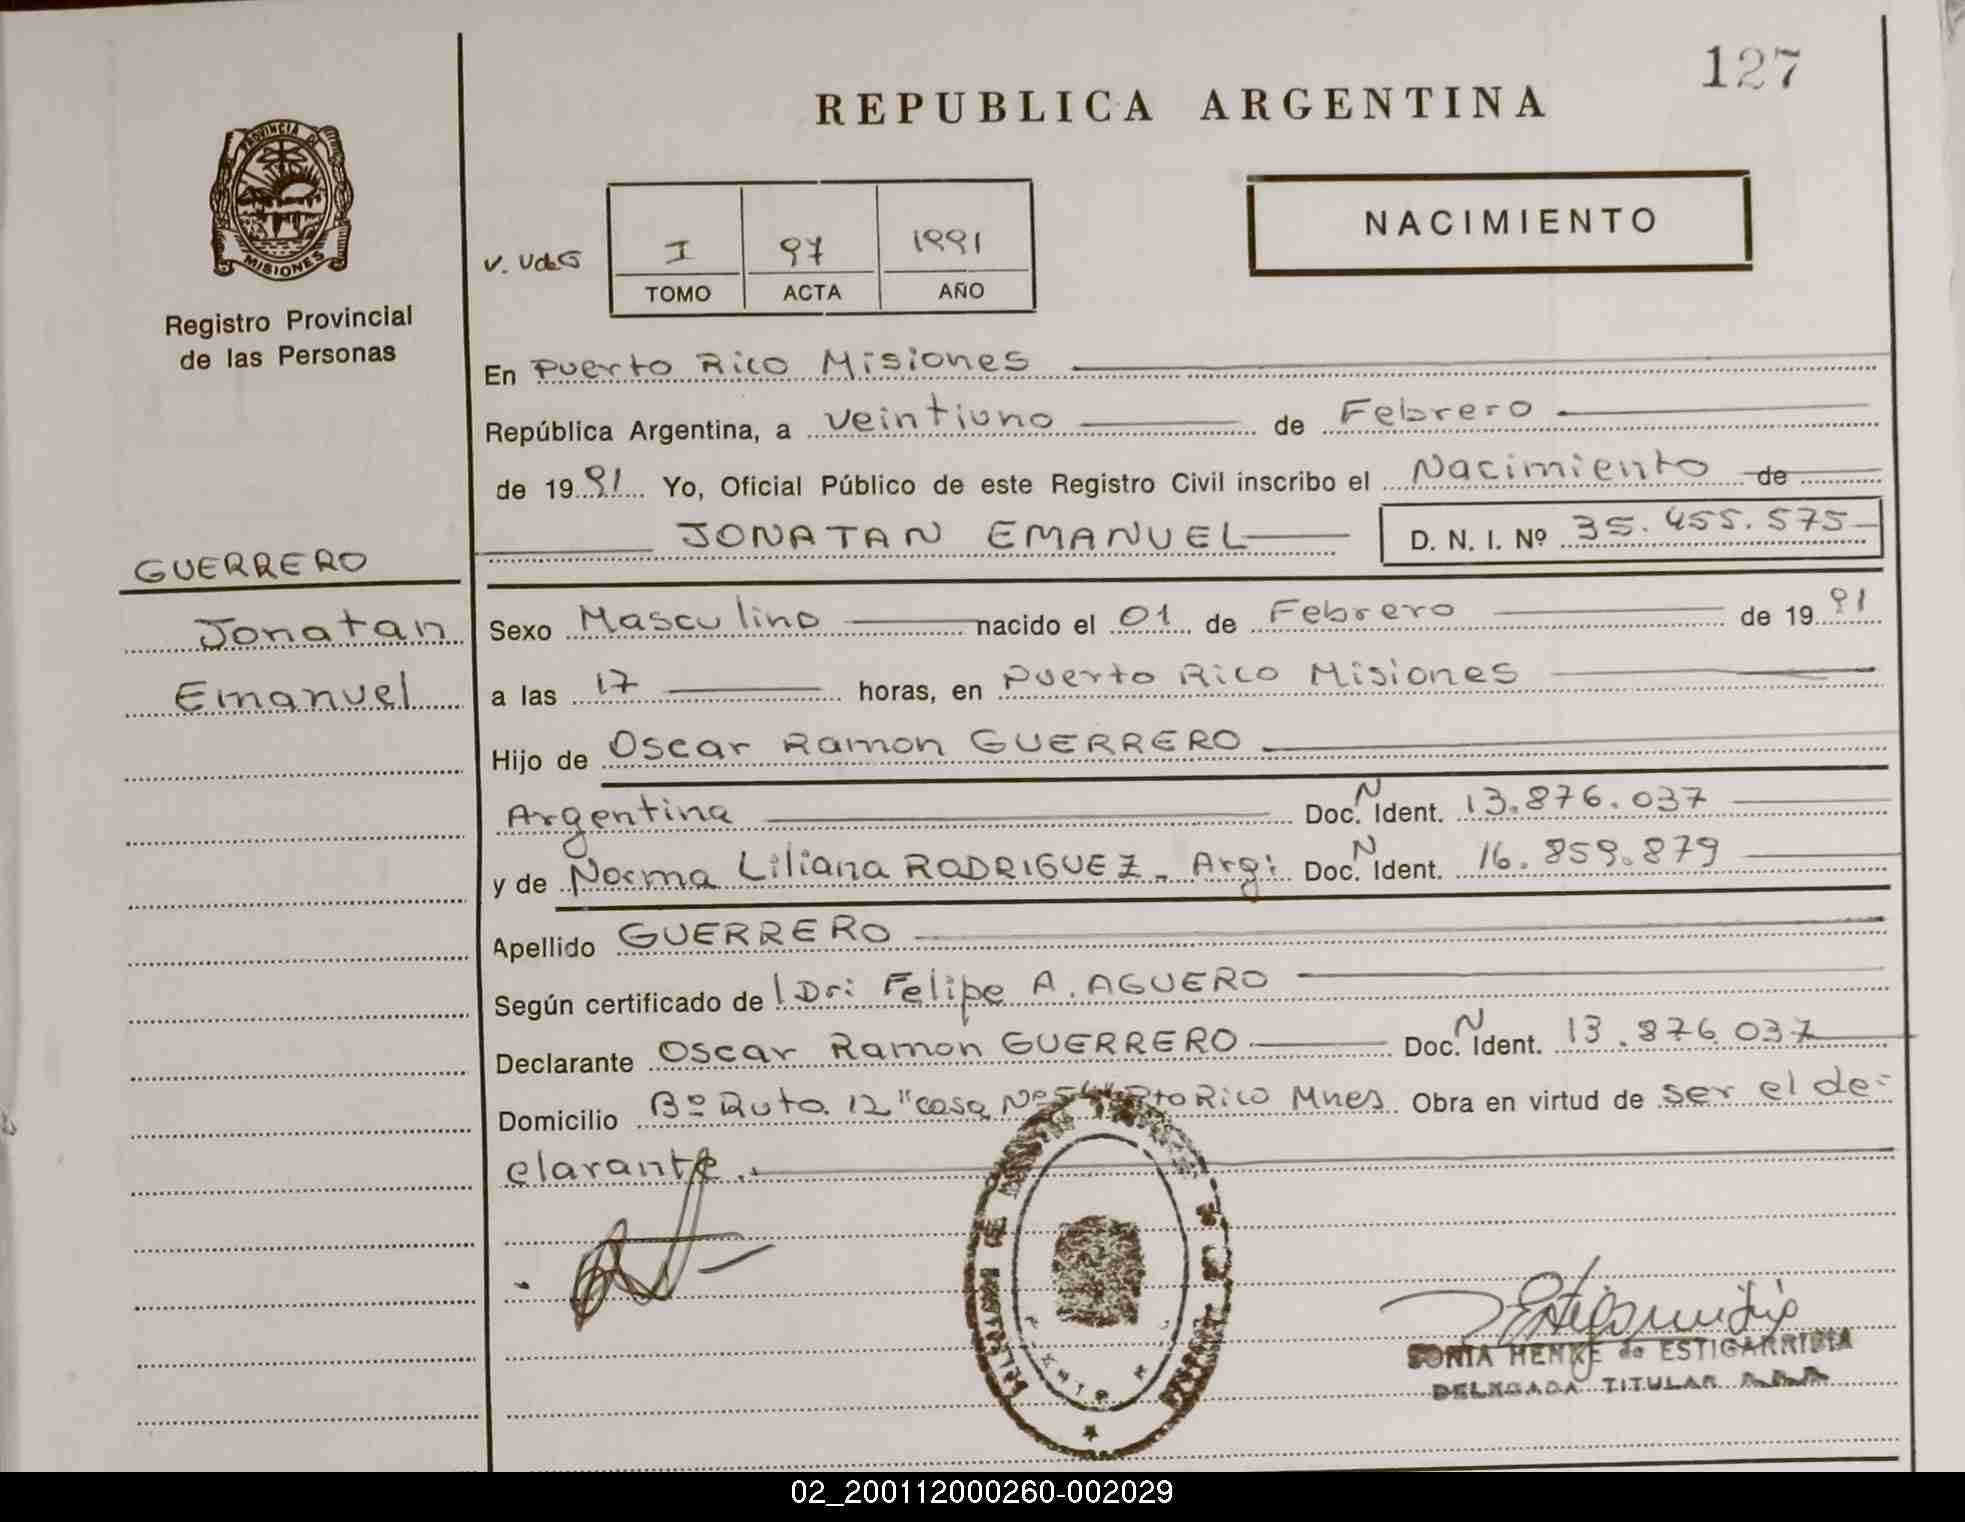 127
REPUBLICA ARGENTINA
PROVINCIA DE
MISIONES
NACIMIENTO
V. UdeG
I 97 1991
TOMO ACTA AÑO
Registro Provincial
de las Personas
En Puerto Rico Misiones
República Argentina, a veintiuno de Febrero
de 1991 Yo, Oficial Público de este Registro Civil inscribo el Nacimiento de
JONATAN EMANUEL D. N. I. Nº 35.455.575
GUERRERO
Jonatan
Emanuel
Sexo Masculino nacido el 01 de Febrero de 1991
a las 17 horas, en Puerto Rico Misiones
Hijo de Oscar Ramon GUERRERO
Argentina Doc. N Ident. 13.876.037
y de Norma Liliana RODRIGUEZ - Arg: Doc. N Ident. 16.859.879
Apellido GUERRERO
Según certificado de Dr: Felipe A. AGUERO
Declarante Oscar Ramon GUERRERO Doc. N Ident. 13.876.037
Domicilio Bº Ruta 12 "casa Nº 54" Pto Rico Mnes Obra en virtud de ser el de-
clarante.
SONIA HENKE de ESTIGARRIBIA
DELEGADA TITULAR
02_200112000260-002029